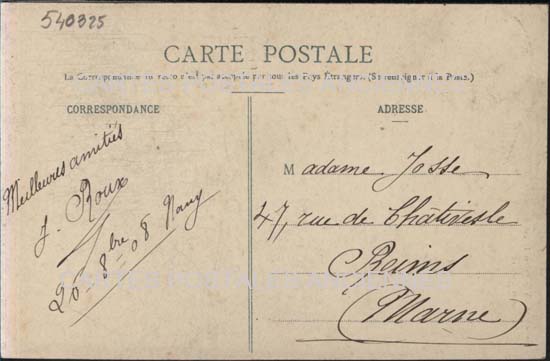 540325
CARTE POSTALE
La Correspondance au recto n'est pas acceptée par tous les Pays Étrangers. (Se renseigner à la Poste.)
CORRESPONDANCE
Meilleures amitiés
J. Roux
20 8bre 08 Nancy
ADRESSE
Madame Josse
47, rue de Châtivesle
Reims
(Marne)